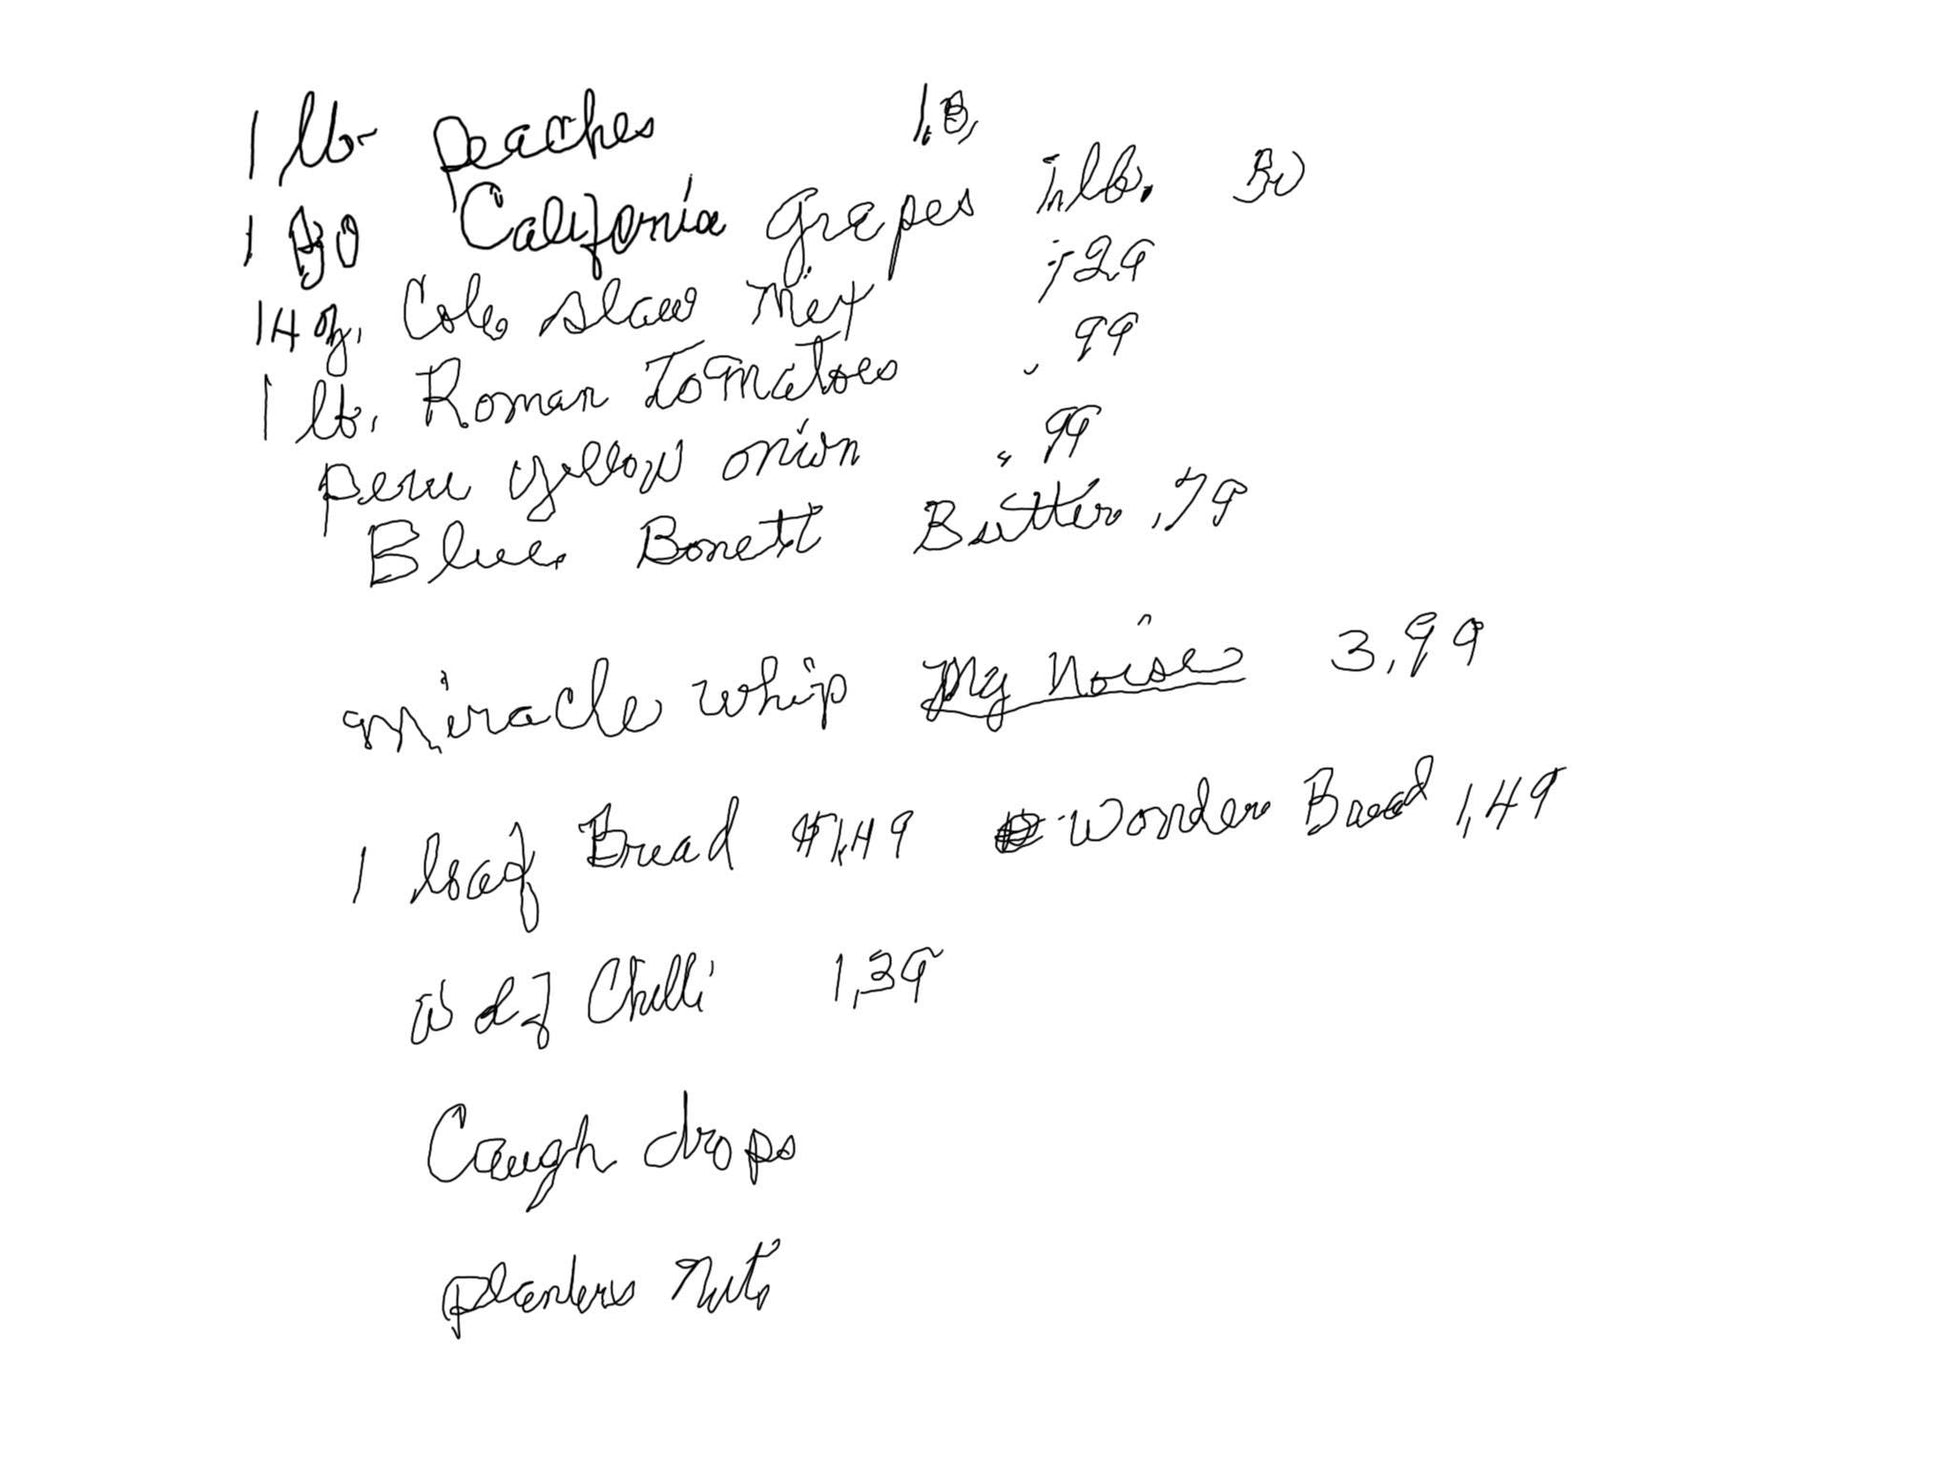 1 lb. peaches
1 California grapes 1 lb.
14 oz. Cole slaw Mex 29
1 lb. Roman Tomatoes .99
peru yellow onion .99
Blue Bonett Butter .79
miracle whip My Noise 3.99
1 loaf Bread $1.49 Wonder Bread 1.49
Chilli 1.39
Cough drops
planters Nuts